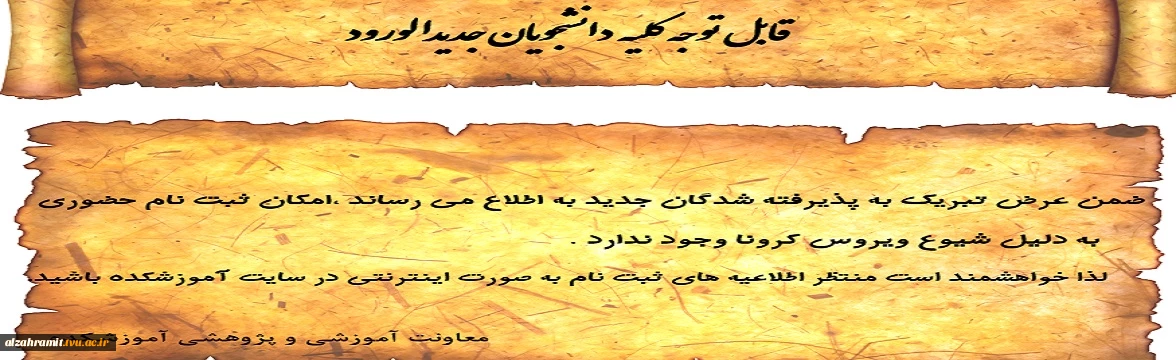 قابل توجه کلیه دانشجویان جدیدالورود
ضمن عرض تبریک به پذیرفته شدگان جدید به اطلاع می رساند ،امکان ثبت نام حضوری
به دلیل شیوع ویروس کرونا وجود ندارد .
لذا خواهشمند است منتظر اطلاعیه های ثبت نام به صورت اینترنتی در سایت آموزشکده باشید
معاونت آموزشی و پژوهشی
alzahramit.tvu.ac.ir